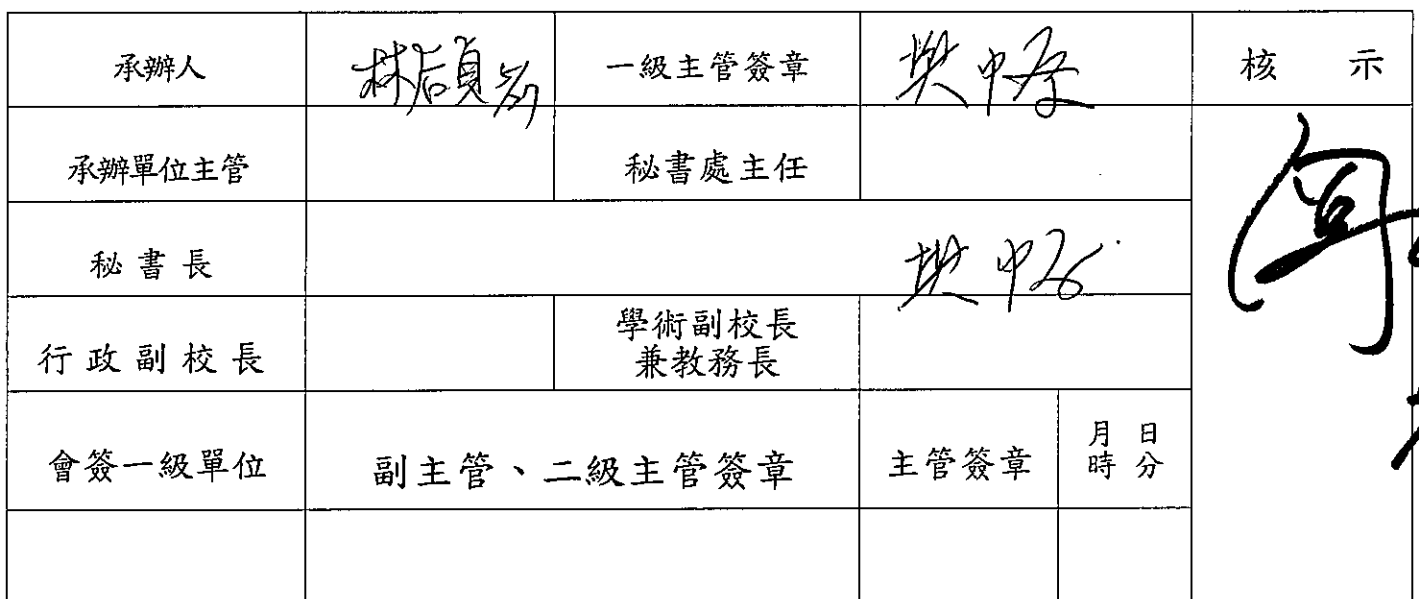 承辦人 林 一級主管簽章 樊中 核示
承辦單位主管 秘書處主任
秘書長 樊中
行政副校長 學術副校長
兼教務長
會簽一級單位 副主管、二級主管簽章 主管簽章 月日
時分